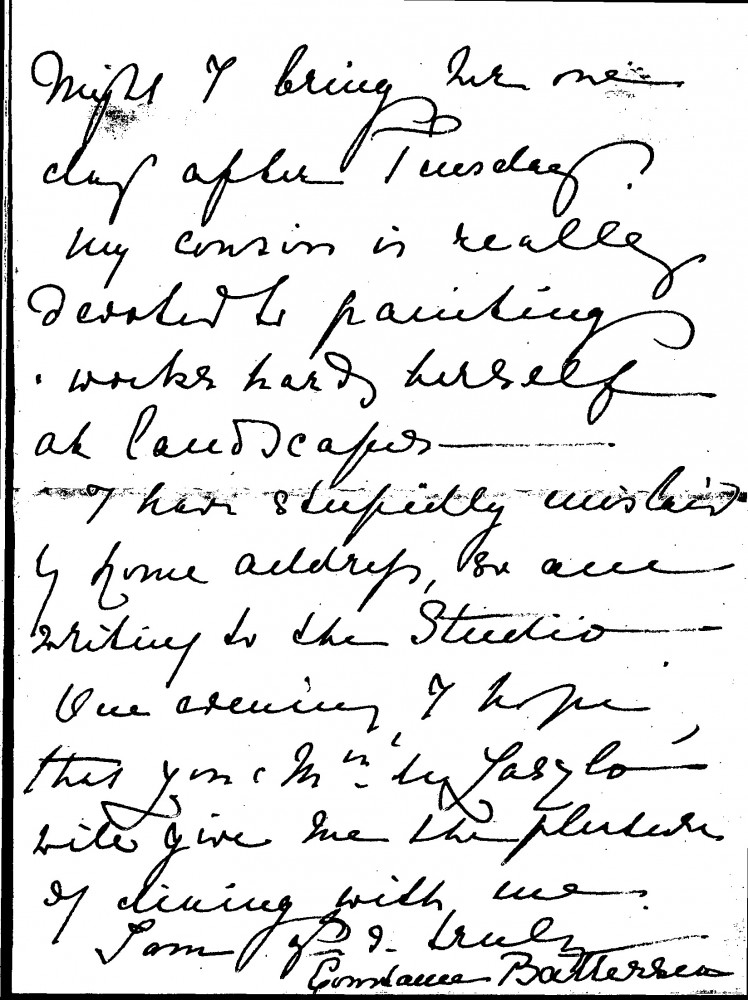 Might I bring her one
day after Tuesday?
My cousin is really
devoted to painting
& works hard herself
at landscapes —
I have stupidly mislaid
yr home address, so am
writing to the Studio —
One evening, I hope,
that you & Mrs. de Laszlo —
will give me the pleasure
of dining with me.
I am yrs. truly
Constance Battersea